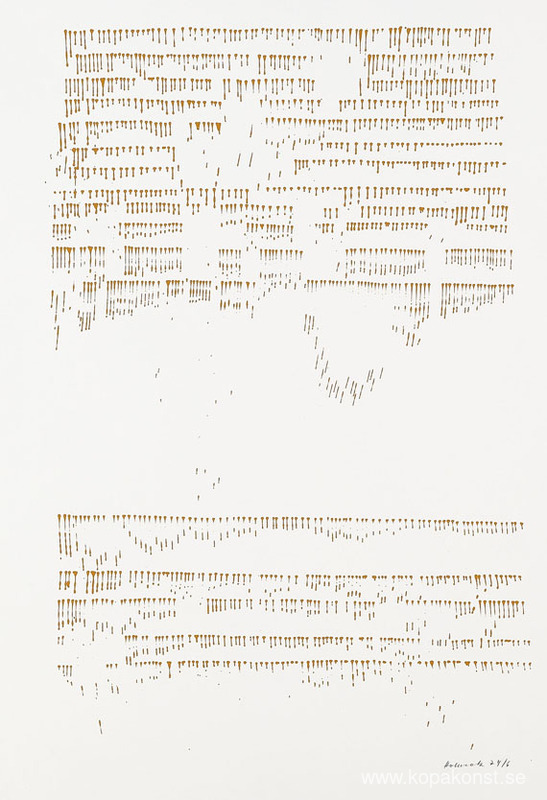 24/6
www.kopakonst.se